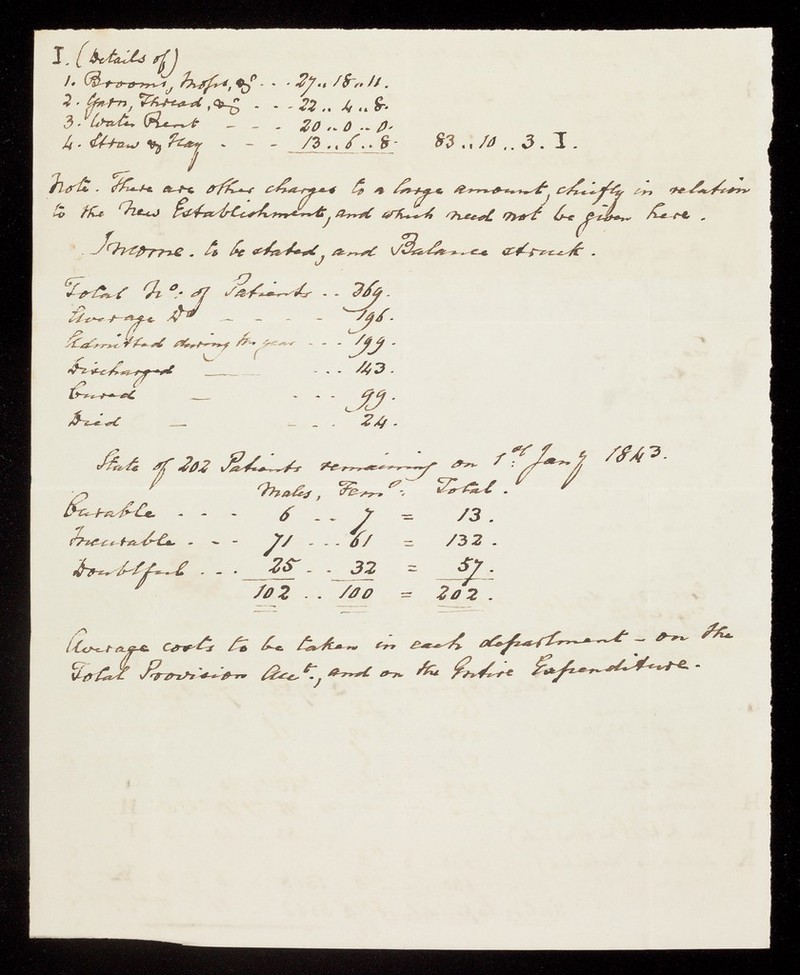 I. (Details of)
1. Brooms, Mops, &c - - - 27..18..11.
2. Yarn, Thread, &c - - - 22..4..8.
3. Water Rent - - - 20..0..0.
4. Straw & Hay - - - 13..6..8. 83..10..3. I.
Note. There are other charges to a large amount, chiefly in relation
to the New Establishment, and which need not be given here.
Income. to be stated, and Balance struck.
Total No: of Patients . . 369.
Average Do - - - - - 196.
Admitted during the year - - - 199.
Discharged — . . . 143.
Cured — - - - 99.
Died — - - - 24.
State of 202 Patients remaining on 1st Jany 1843.
Males, Fems: Total.
Curable - - - 6 - - 7 = 13.
Incurable - - - 71 - - - 61 = 132.
Doubtful . . . 25 . . 32 = 57.
102 . . 100 = 202.
Average costs to be taken in each department - on the
Total Provision Acct., and on the Entire Expenditure.